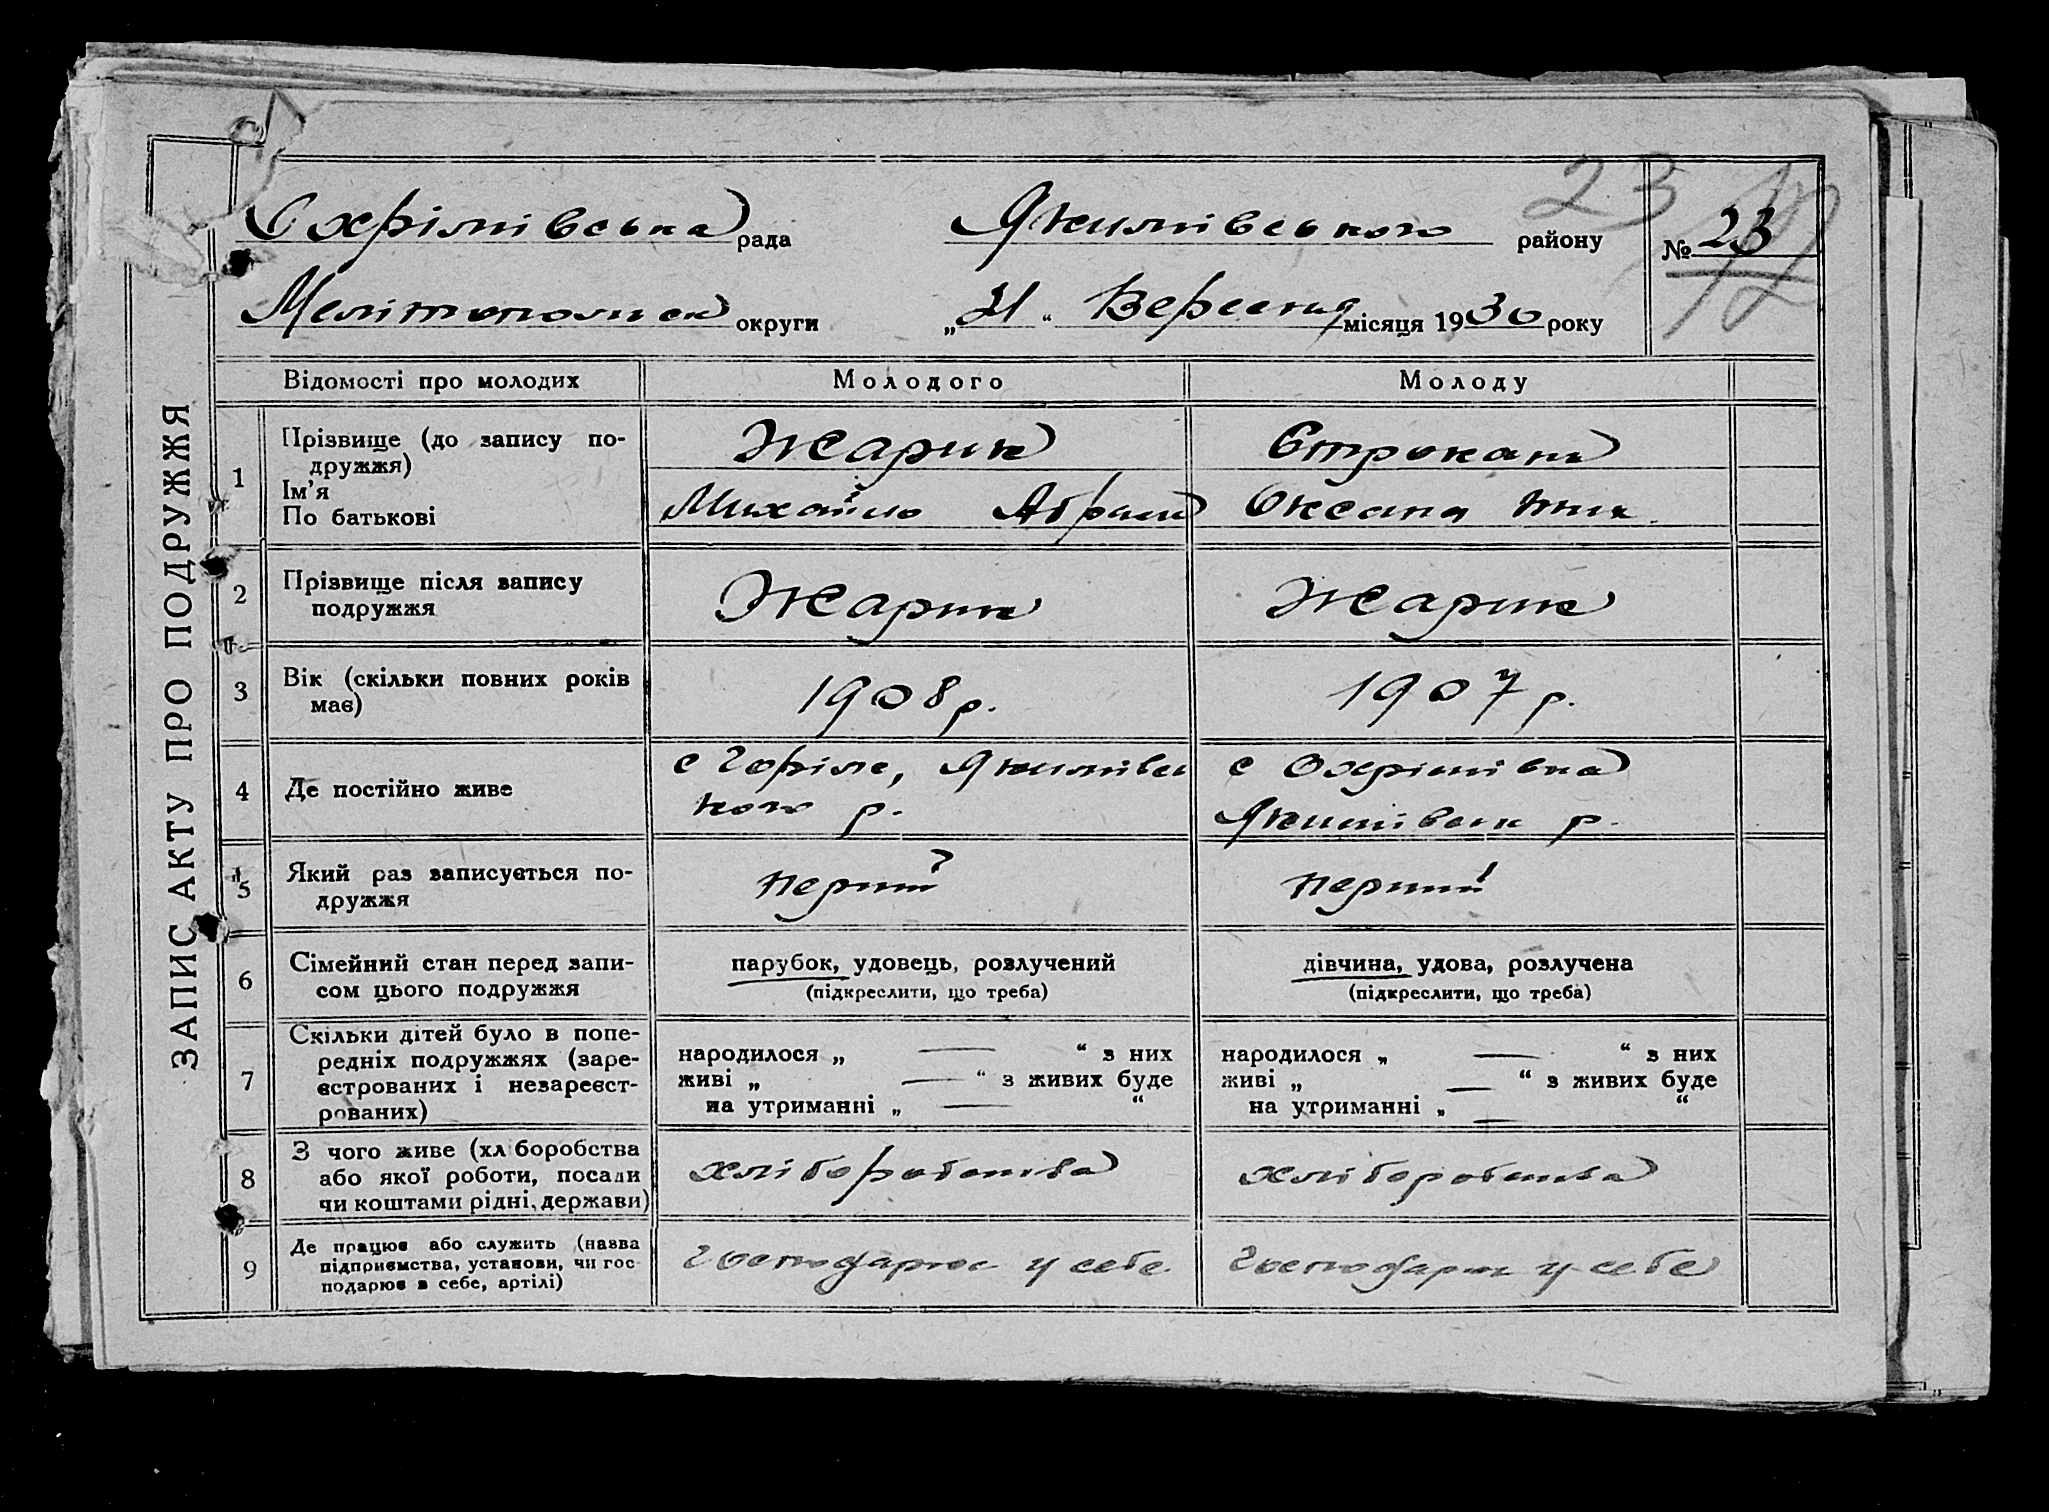 ЗАПИС АКТУ ПРО ПОДРУЖЖЯ
23
Охрімівська рада Якимівського району № 23
Мелітопольск округи „21“ Вересня місяця 1930 року
Відомості про молодих Молодого Молоду
1 Прізвище (до запису по-
дружжя)
Ім’я
По батькові
Жарик
Михайло Абрам
Строкань
Оксана
2 Прізвище після запису
подружжя
Жарик Жарик
3 Вік (скільки повних років
має)
1908 р. 1907 р.
4 Де постійно живе
с Горіле, Якимівсь
кого р.
с Охрімівка
Якимівськ р.
5 Який раз записується по-
дружжя
перший перший
6 Сімейний стан перед запи-
сом цього подружжя
парубок, удовець, розлучений
(підкреслити, що треба)
дівчина, удова, розлучена
(підкреслити, що треба)
7 Скільки дітей було в попе-
редніх подружжях (заре-
єстрованих і незареєст-
рованих)
народилося „ — “ з них
живі „ — “ з живих буде
на утриманні „ — “
народилося „ — “ з них
живі „ — “ з живих буде
на утриманні „ — “
8 З чого живе (хл боробства
або якої роботи, посади
чи коштами рідні, держави)
хліборобства хліборобства
9 Де працює або служить (назва
підприємства, установи, чи гос-
подарює в себе, артілі)
господарює у себе господарює у себе